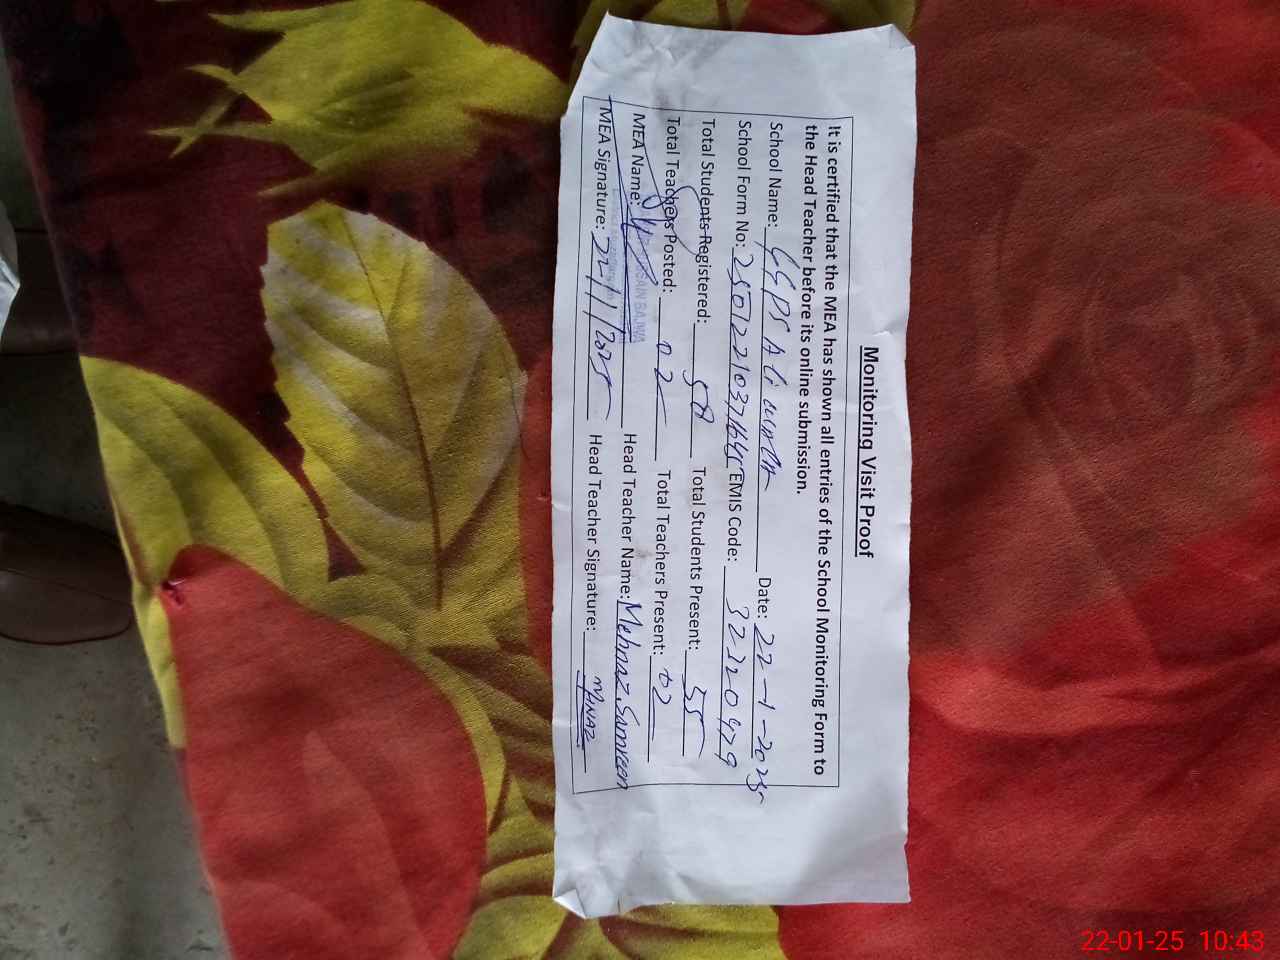 Monitoring Visit Proof
It is certified that the MEA has shown all entries of the School Monitoring Form to
the Head Teacher before its online submission.
School Name: GGPS Ali Date: 22-1-2025
School Form No: EMIS Code: 32320479
Total Students Registered: 58 Total Students Present: 55
Total Teachers Posted: 02 Total Teachers Present: 02
MEA Name: BAJWA Head Teacher Name: Mehnaz Samreen
MEA Signature: 22/1/2025 Head Teacher Signature:
22-01-25 10:43